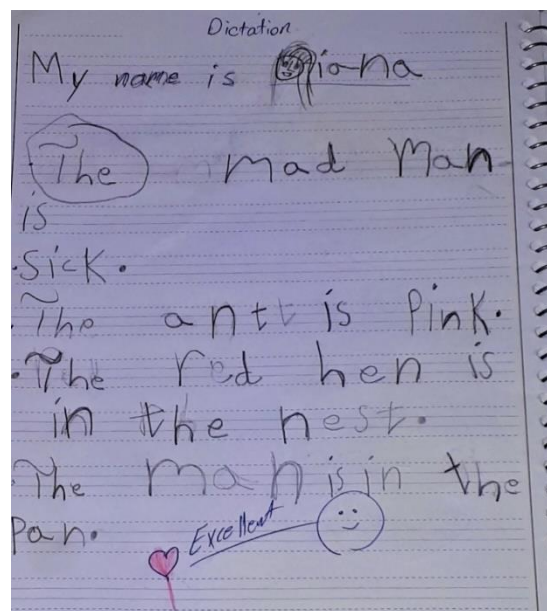 Dictation
My name is Diana
The mad Man
is
Sick.
The antt is Pink.
The red hen is
in the nest.
The man is in the
Pan.
Excellent